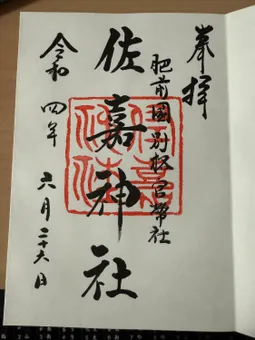 奉拝
肥前國別格官幣社
佐嘉神社
令和四年六月二十六日
佐嘉神社